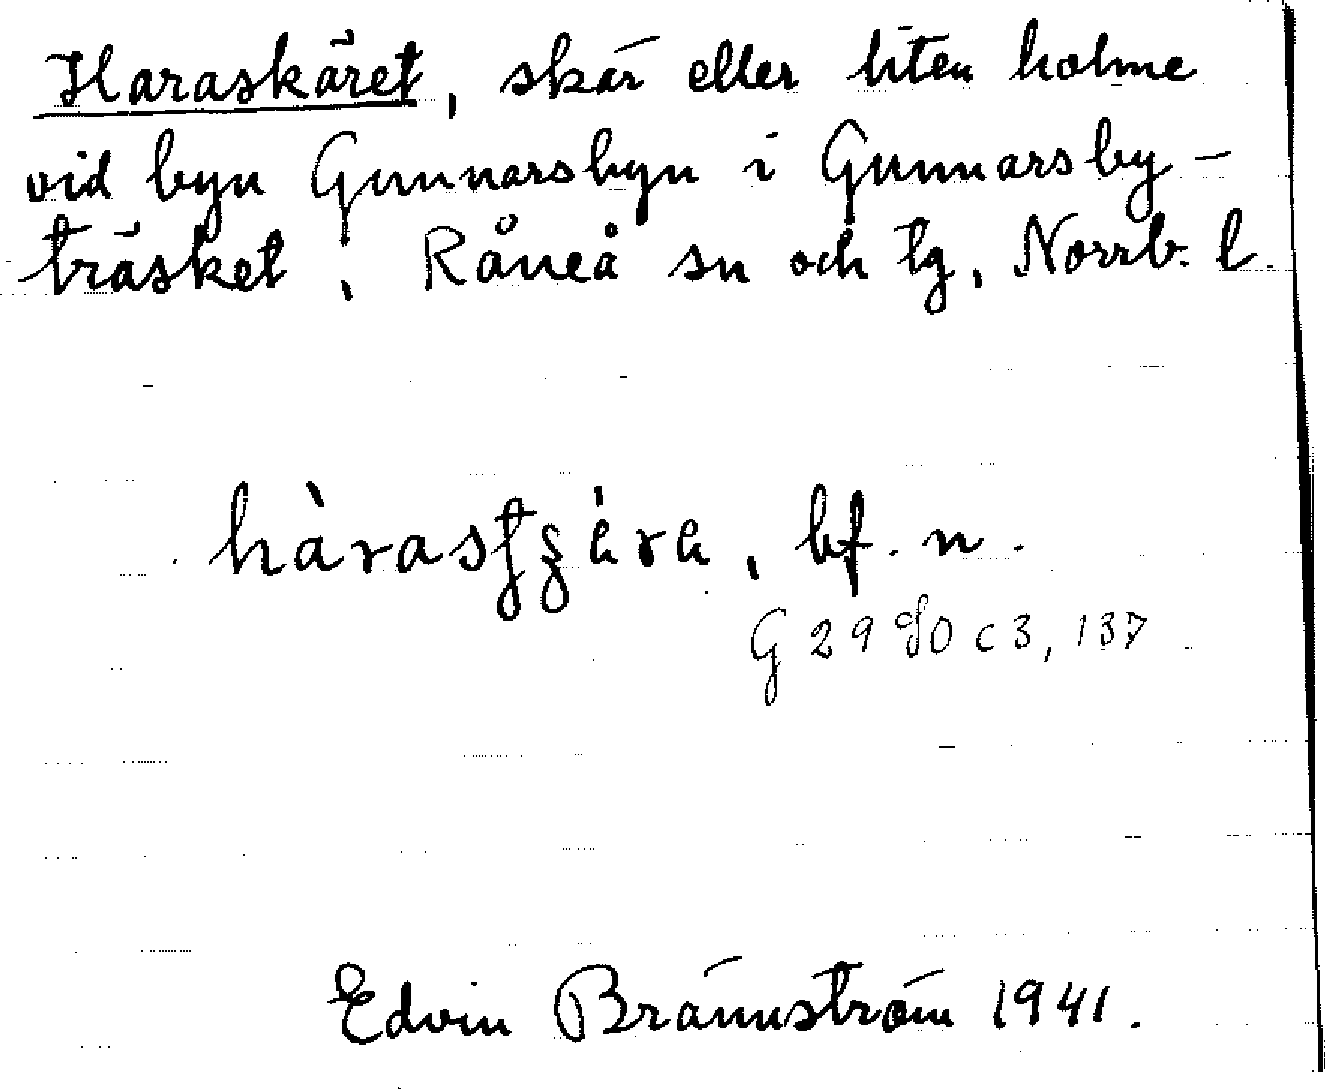 Haraskäret, skär eller liten holme
vid byn Gunnarsbyn i Gunnarsby-
träsket, Råneå sn och tg, Norrb. l.
bf. n.
G 29 c 3, 137
Edvin Brännström 1941.